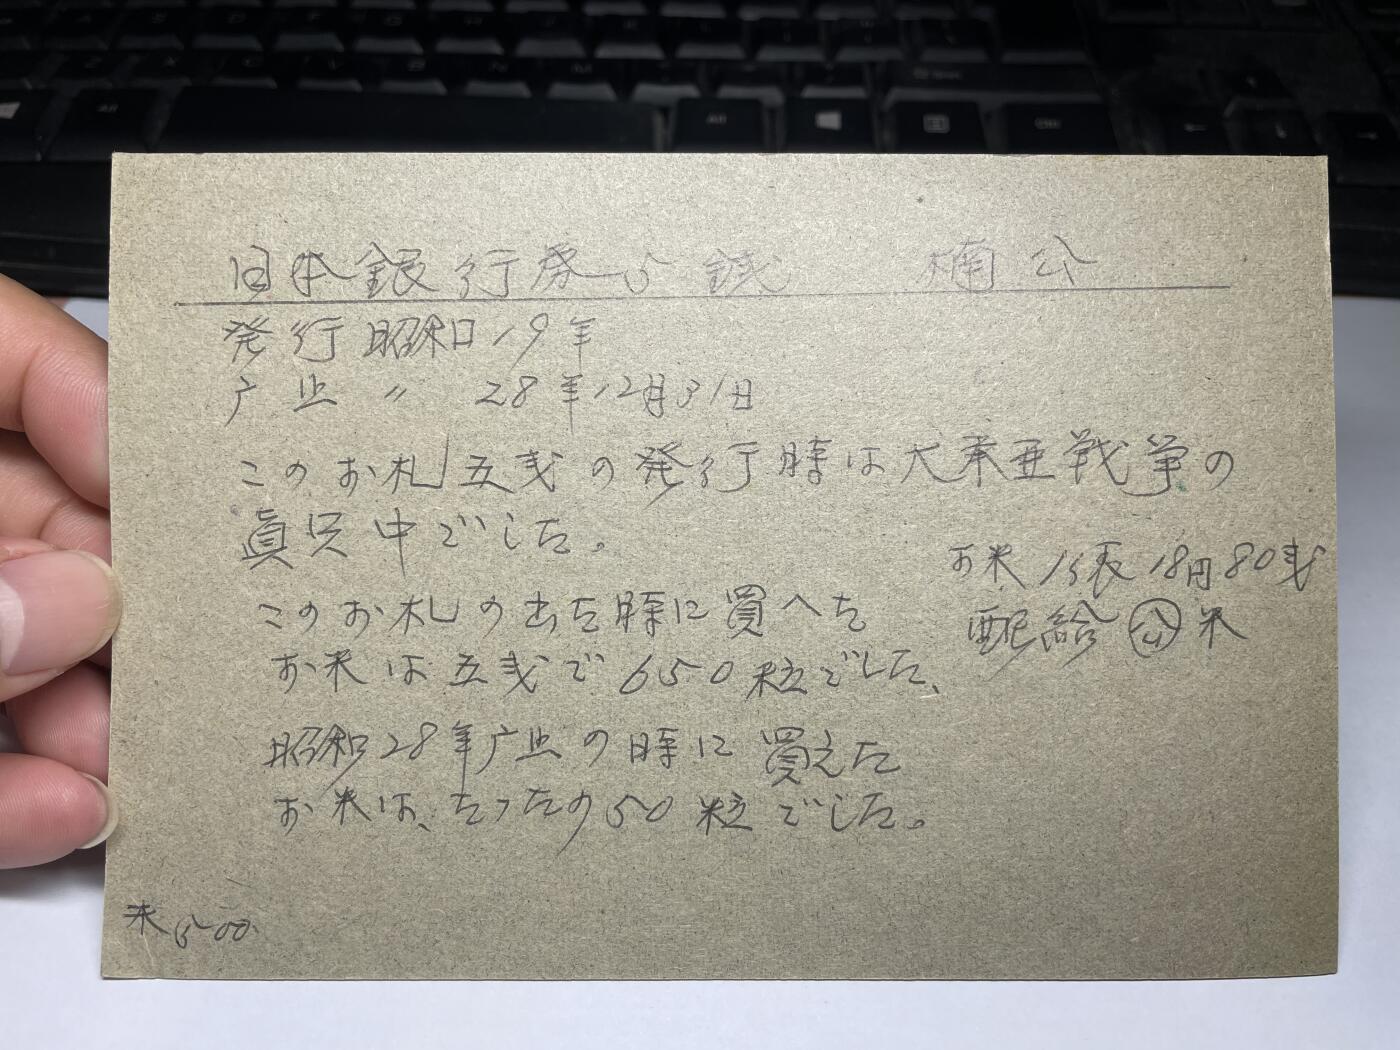 日本銀行券 5 銭　楠公
発行 昭和19年
廃止 〃 28年12月31日
このお札五銭の発行時は大東亜戦争の
眞只中でした。
お米 1俵 18円80銭
配給 公 米
このお札の出た時に買へた
お米は五銭で650粒でした、
昭和28年廃止の時に買えた
お米は、たったの50粒でした。